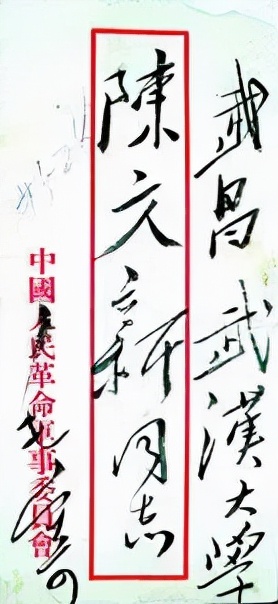 武昌武漢大學
陳文新同志
中國人民革命軍事委員會